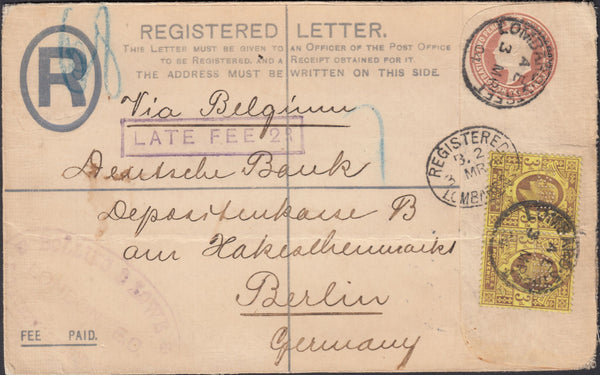 REGISTERED LETTER.
THIS LETTER MUST BE GIVEN TO AN OFFICER OF THE POST OFFICE
TO BE REGISTERED, AND A RECEIPT OBTAINED FOR IT.
THE ADDRESS MUST BE WRITTEN ON THIS SIDE.
R
Via Belgium
LATE FEE 2d
REGISTERED
MR
LOMBA
Deutsche Bank
Depositenkasse B
am Hakeschenmarkt
Berlin
Germany
FEE PAID.